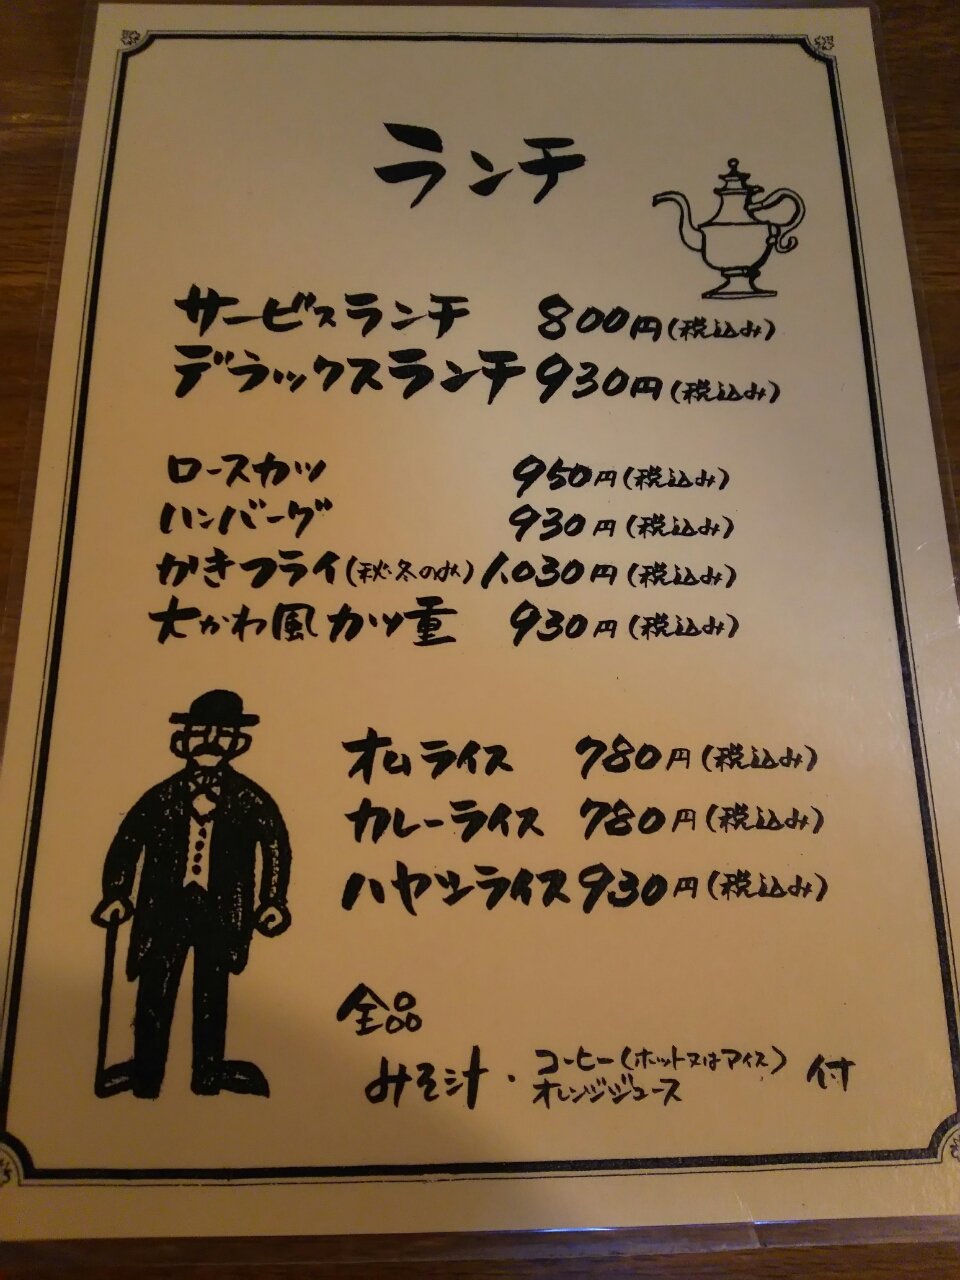 ランチ
サービスランチ 800円(税込み)
デラックスランチ 930円(税込み)
ロースカツ 950円(税込み)
ハンバーグ 930円(税込み)
かきフライ(秋・冬のみ) 1,030円(税込み)
大かわ風カツ重 930円(税込み)
オムライス 780円(税込み)
カレーライス 780円(税込み)
ハヤシライス 930円(税込み)
全品
みそ汁・コーヒー(ホット又はアイス) 付
オレンジジュース